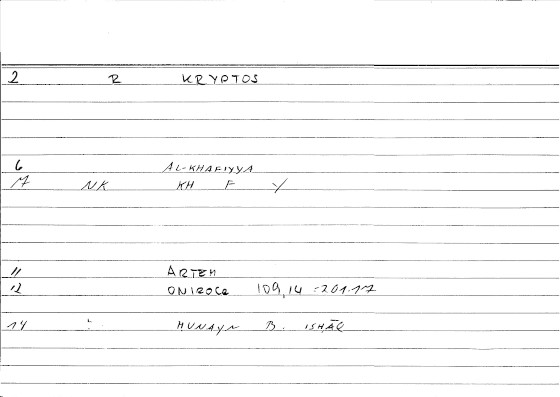 2 R KRYPTOS
6 AL-KHAFIYYA
NK KH F Y
11 ARTEM
12 ONIROCR 109,14 = 201.17
14 HUNAYN B. ISHĀQ